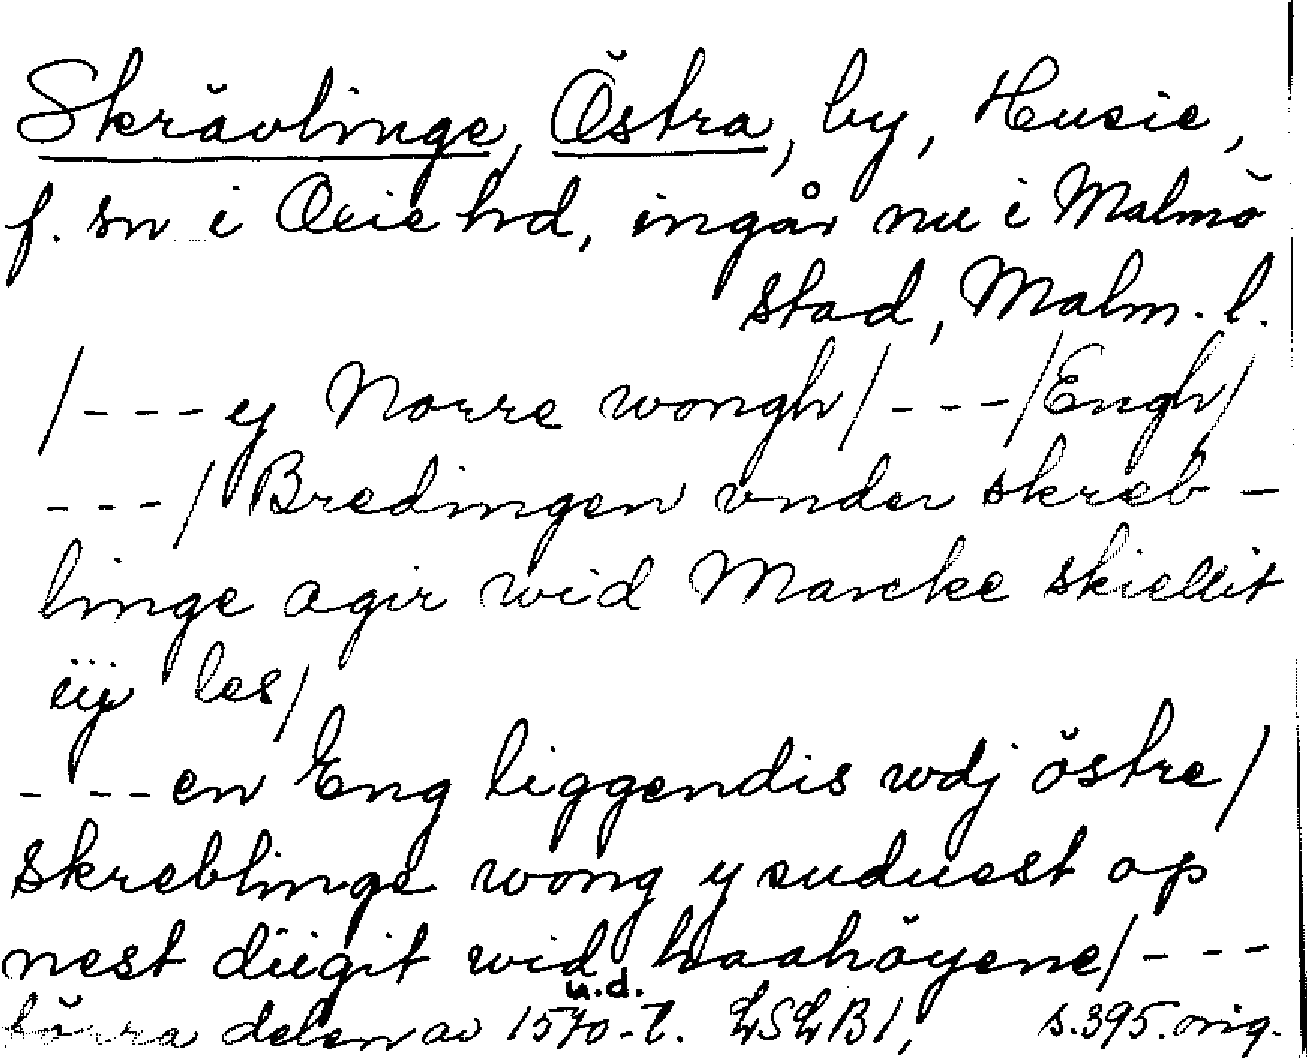 Skrävlinge, Östra, by, Husie,
f. sn i Oxie hd, ingår nu i Malmö
stad, Malm. l.
/---y Norre wongh/---/Engh/
---/Bredingen vnder skreb-
linge agir wid Marcke skiellit
iij les/
---en Eng liggendis wdj östre/
skreblinge wong y suduest op
nest diigit wid haahöyene/---
förra delen av 1570-t. u.d. LSLB1, s.395.orig.